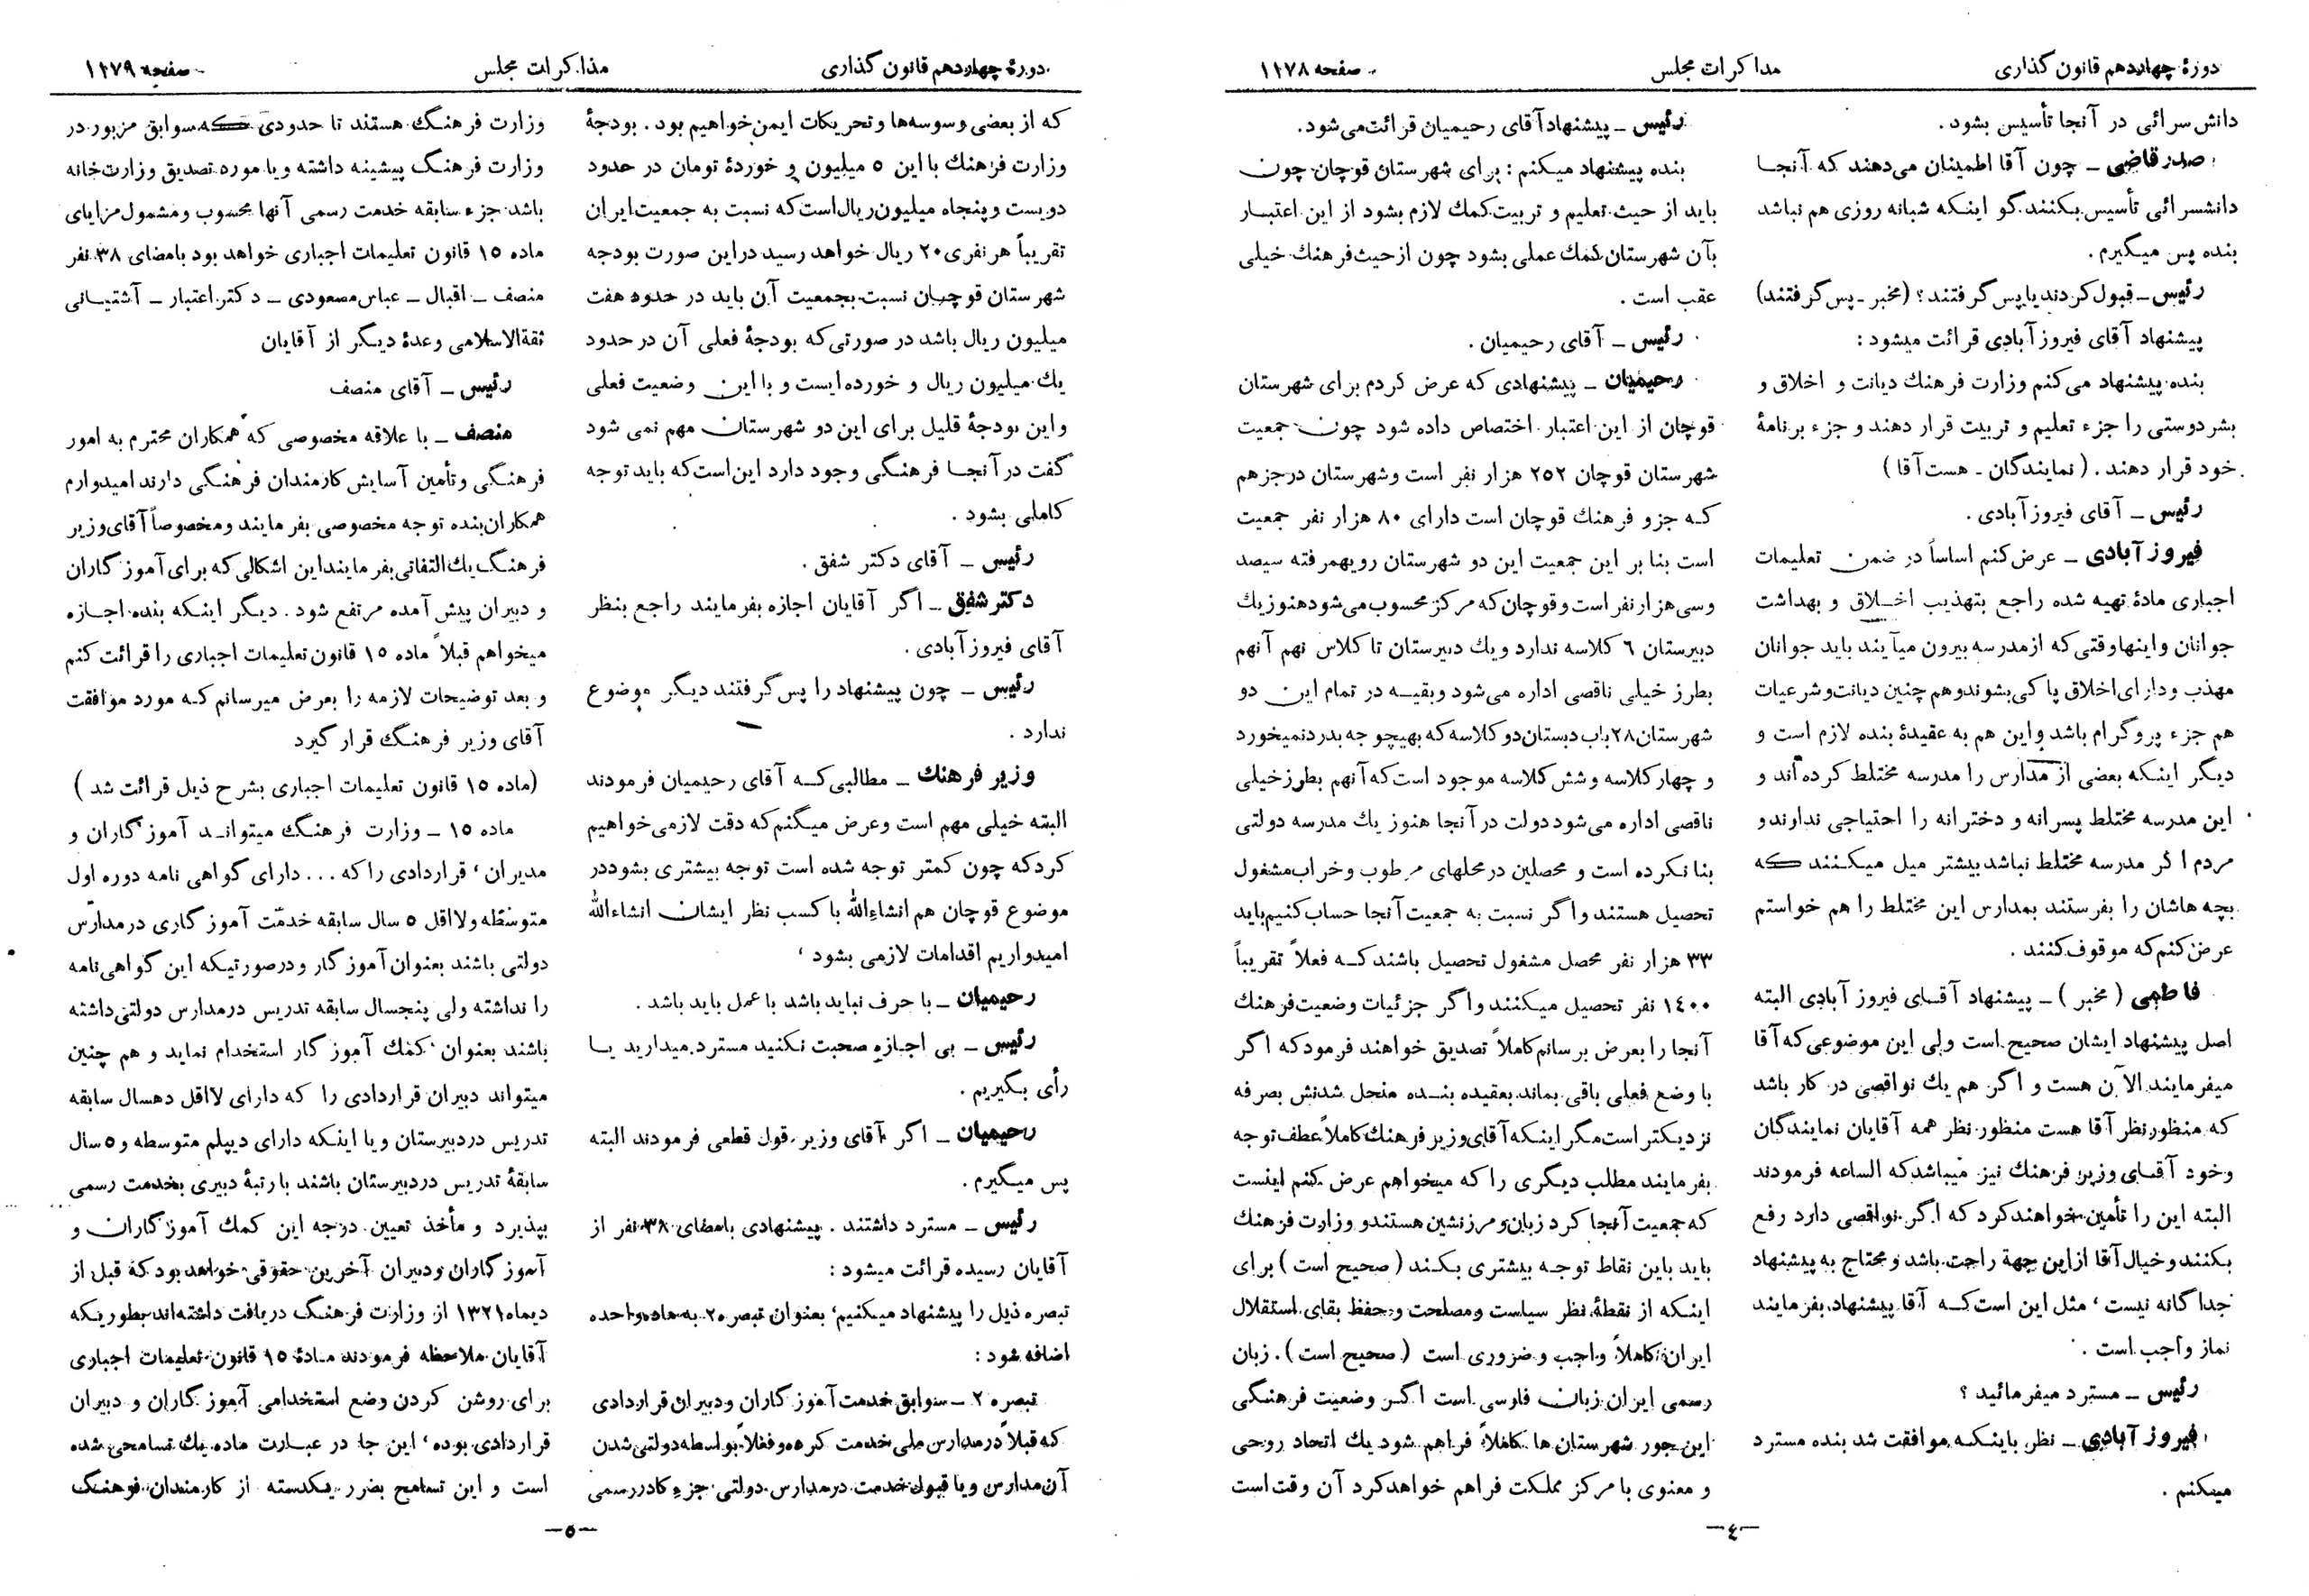 دورهٔ چهاردهم قانون گذاری
مذاکرات مجلس
صفحه ۱۱۷۸
دانش سرائی در آنجا تأسیس بشود.
صدر قاضی ـ چون آقا اطمینان می‌دهند که آنجا
دانشسرائی تأسیس بکنند گو اینکه شبانه روزی هم نباشد
بنده پس میگیرم.
رئیس ـ قبول کردند یا پس گرفتند؟ (مخبر ـ پس گرفتند)
پیشنهاد آقای فیروز آبادی قرائت میشود:
بنده پیشنهاد می‌کنم وزارت فرهنك دیانت و اخلاق و
بشر دوستی را جزء تعلیم و تربیت قرار دهند و جزء برنامهٔ
خود قرار دهند. (نمایندگان ـ هست آقا)
رئیس ـ آقای فیروز آبادی.
فیروز آبادی ـ عرض کنم اساساً در ضمن تعلیمات
اجباری مادهٔ تهیه شده راجع بتهذیب اخلاق و بهداشت
جوانان و اینها وقتی که از مدرسه بیرون میآیند باید جوانان
مهذب و دارای اخلاق پاکی بشوند و هم چنین دیانت و شرعیات
هم جزء پروگرام باشد و این هم به عقیدهٔ بنده لازم است و
دیگر اینکه بعضی از مدارس را مدرسه مختلط کرده‌اند و
این مدرسه مختلط پسرانه و دخترانه را احتیاجی ندارند و
مردم اگر مدرسه مختلط نباشد بیشتر میل میکنند که
بچه هاشان را بفرستند بمدارس این مختلط را هم خواستم
عرض کنم که موقوف کنند.
فاطمی (مخبر) ـ پیشنهاد آقای فیروز آبادی البته
اصل پیشنهاد ایشان صحیح است ولی این موضوعی که آقا
میفرمایند الآن هست و اگر هم یك نواقصی در کار باشد
که منظور نظر آقا هست منظور نظر همه آقایان نمایندگان
و خود آقای وزیر فرهنك نیز میباشد که الساعه فرمودند
البته این را تأمین خواهند کرد که اگر نواقصی دارد رفع
بکنند و خیال آقا از این جهة راحت باشد و محتاج به پیشنهاد
جداگانه نیست، مثل این است که آقا پیشنهاد بفرمایند
نماز واجب است.
رئیس ـ مسترد میفرمائید؟
فیروز آبادی ـ نظر باینکه موافقت شد بنده مسترد
میکنم.
رئیس ـ پیشنهاد آقای رحیمیان قرائت می‌شود.
بنده پیشنهاد میکنم: برای شهرستان قوچان چون
باید از حیث تعلیم و تربیت کمك لازم بشود از این اعتبار
بآن شهرستان کمك عملی بشود چون از حیث فرهنك خیلی
عقب است.
رئیس ـ آقای رحیمیان.
رحیمیان ـ پیشنهادی که عرض کردم برای شهرستان
قوچان از این اعتبار اختصاص داده شود چون جمعیت
شهرستان قوچان ۲۵۲ هزار نفر است و شهرستان درجز هم
که جزو فرهنك قوچان است دارای ۸۰ هزار نفر جمعیت
است بنا بر این جمعیت این دو شهرستان رویهمرفته سیصد
وسی هزار نفر است و قوچان که مرکز محسوب می‌شود هنوز یك
دبیرستان ۶ کلاسه ندارد و یك دبیرستان تا کلاس نهم آنهم
بطرز خیلی ناقصی اداره می‌شود و بقیه در تمام این دو
شهرستان ۲۸ باب دبستان دو کلاسه که بهیچوجه بدرد نمیخورد
و چهار کلاسه و شش کلاسه موجود است که آنهم بطرز خیلی
ناقصی اداره می‌شود دولت در آنجا هنوز یك مدرسه دولتی
بنا نکرده است و محصلین در محلهای مرطوب و خراب مشغول
تحصیل هستند و اگر نسبت به جمعیت آنجا حساب کنیم باید
۳۳ هزار نفر محصل مشغول تحصیل باشند که فعلاً تقریباً
۱۴۰۰ نفر تحصیل میکنند و اگر جزئیات وضعیت فرهنك
آنجا را بعرض برسانم کاملاً تصدیق خواهند فرمود که اگر
با وضع فعلی باقی بماند بعقیده بنده منحل شدنش بصرفه
نزدیکتر است مگر اینکه آقای وزیر فرهنك کاملاً عطف توجه
بفرمایند مطلب دیگری را که میخواهم عرض کنم اینست
که جمعیت آنجا کرد زبان و مرزنشین هستند و وزارت فرهنك
باید باین نقاط توجه بیشتری بکند (صحیح است) برای
اینکه از نقطهٔ نظر سیاست و مصلحت و حفظ بقای استقلال
ایران کاملاً واجب و ضروری است (صحیح است). زبان
رسمی ایران زبان فارسی است اگر وضعیت فرهنگی
این جور شهرستان ها کاملاً فراهم شود یك اتحاد روحی
و معنوی با مرکز مملکت فراهم خواهد کرد آن وقت است
ـ۴ـ
دورهٔ چهاردهم قانون گذاری
مذاکرات مجلس
صفحه ۱۱۷۹
که از بعضی وسوسه‌ها و تحریکات ایمن خواهیم بود. بودجهٔ
وزارت فرهنك با این ۵ میلیون و خوردهٔ تومان در حدود
دویست و پنجاه میلیون ریال است که نسبت به جمعیت ایران
تقریباً هر نفری ۲۰ ریال خواهد رسید در این صورت بودجه
شهرستان قوچان نسبت بجمعیت آن باید در حدود هفت
میلیون ریال باشد در صورتی که بودجهٔ فعلی آن در حدود
یك میلیون ریال و خورده ایست و با این وضعیت فعلی
و این بودجهٔ قلیل برای این دو شهرستان مهم نمی شود
گفت در آنجا فرهنگی وجود دارد این است که باید توجه
کاملی بشود.
رئیس ـ آقای دکتر شفق.
دکتر شفق ـ اگر آقایان اجازه بفرمایند راجع بنظر
آقای فیروز آبادی.
رئیس ـ چون پیشنهاد را پس گرفتند دیگر موضوع
ندارد.
وزیر فرهنك ـ مطالبی که آقای رحیمیان فرمودند
البته خیلی مهم است و عرض میکنم که دقت لازمی خواهیم
کرد که چون کمتر توجه شده است توجه بیشتری بشود در
موضوع قوچان هم انشاءالله با کسب نظر ایشان انشاءالله
امیدواریم اقدامات لازمی بشود،
رحیمیان ـ با حرف نباید باشد با عمل باید باشد.
رئیس ـ بی اجازه صحبت نکنید مسترد میدارید یا
رأی بگیریم.
رحیمیان ـ اگر آقای وزیر قول قطعی فرمودند البته
پس میگیرم.
رئیس ـ مسترد داشتند. پیشنهادی بامضای ۳۸ نفر از
آقایان رسیده قرائت میشود:
تبصره ذیل را پیشنهاد میکنیم، بعنوان تبصره ۲ به ماده واحده
اضافه شود:
تبصره ۲ ـ سوابق خدمت آموزگاران و دبیران قراردادی
که قبلاً در مدارس ملی خدمت کرده و فعلاً بواسطه دولتی شدن
آن مدارس و یا قبول خدمت در مدارس دولتی جزء کادر رسمی
وزارت فرهنگ هستند تا حدودی که سوابق مزبور در
وزارت فرهنگ پیشینه داشته و یا مورد تصدیق وزارت خانه
باشد جزء سابقه خدمت رسمی آنها محسوب و مشمول مزایای
ماده ۱۵ قانون تعلیمات اجباری خواهد بود بامضای ۳۸ نفر
منصف ـ اقبال ـ عباس مسعودی ـ دکتر اعتبار ـ آشتیانی
ثقةالاسلامی وعدهٔ دیگر از آقایان
رئیس ـ آقای منصف
منصف ـ با علاقه مخصوصی که همکاران محترم به امور
فرهنگی و تأمین آسایش کارمندان فرهنگی دارند امیدوارم
همکاران بنده توجه مخصوصی بفرمایند و مخصوصاً آقای وزیر
فرهنگ یك التفاتی بفرمایند این اشکالی که برای آموزگاران
و دبیران پیش آمده مرتفع شود. دیگر اینکه بنده اجازه
میخواهم قبلاً ماده ۱۵ قانون تعلیمات اجباری را قرائت کنم
و بعد توضیحات لازمه را بعرض میرسانم که مورد موافقت
آقای وزیر فرهنگ قرار گیرد
(ماده ۱۵ قانون تعلیمات اجباری بشرح ذیل قرائت شد)
ماده ۱۵ ـ وزارت فرهنگ میتواند آموزگاران و
مدیران، قراردادی را که ... دارای گواهی نامه دوره اول
متوسطه و لااقل ۵ سال سابقه خدمت آموزگاری در مدارس
دولتی باشند بعنوان آموزگار و درصورتیکه این گواهی نامه
را نداشته ولی پنجسال سابقه تدریس در مدارس دولتی داشته
باشند بعنوان کمك آموزگار استخدام نماید و هم چنین
میتواند دبیران قراردادی را که دارای لااقل دهسال سابقه
تدریس در دبیرستان و یا اینکه دارای دیپلم متوسطه و ۵ سال
سابقهٔ تدریس در دبیرستان باشند با رتبهٔ دبیری بخدمت رسمی
بپذیرد و مأخذ تعیین درجه این کمك آموزگاران و
آموزگاران و دبیران آخرین حقوقی خواهد بود که قبل از
دیماه ۱۳۲۱ از وزارت فرهنگ دریافت داشته‌اند بطوریکه
آقایان ملاحظه فرمودند مادهٔ ۱۵ قانون تعلیمات اجباری
برای روشن کردن وضع استخدامی آموزگاران و دبیران
قراردادی بوده، این جا در عبارت ماده یك تسامحی شده
است و این تسامح بضرر یکدسته از کارمندان فرهنگ
ـ۵ـ